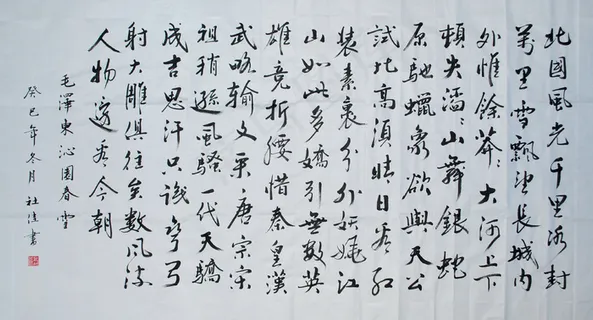 北國風光千里冰封
萬里雪飄望長城內
外惟餘莽々大河上下
頓失滔々山舞銀蛇
原馳蠟象欲與天公
試比高須晴日看紅
裝素裹分外妖嬈江
山如此多嬌引無數英
雄競折腰惜秦皇漢
武略輸文采唐宗宋
祖稍遜風騷一代天驕
成吉思汗只識彎弓
射大雕俱往矣數風流
人物還看今朝
毛澤東沁園春雪
癸巳年冬月杜書